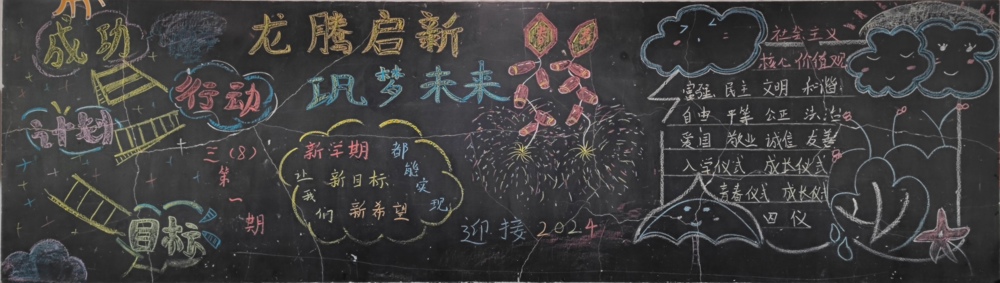 成功
行动
计划
目标
龙腾启新
讯梦未来
三(8)
第一期
新学期
让我们
新目标
新希望
都能实现
迎接2024
社会主义
核心价值观
富强 民主 文明 和谐
自由 平等 公正 法治
爱国 敬业 诚信 友善
入学仪式 成长仪式
青春仪式 成长仪式
四仪